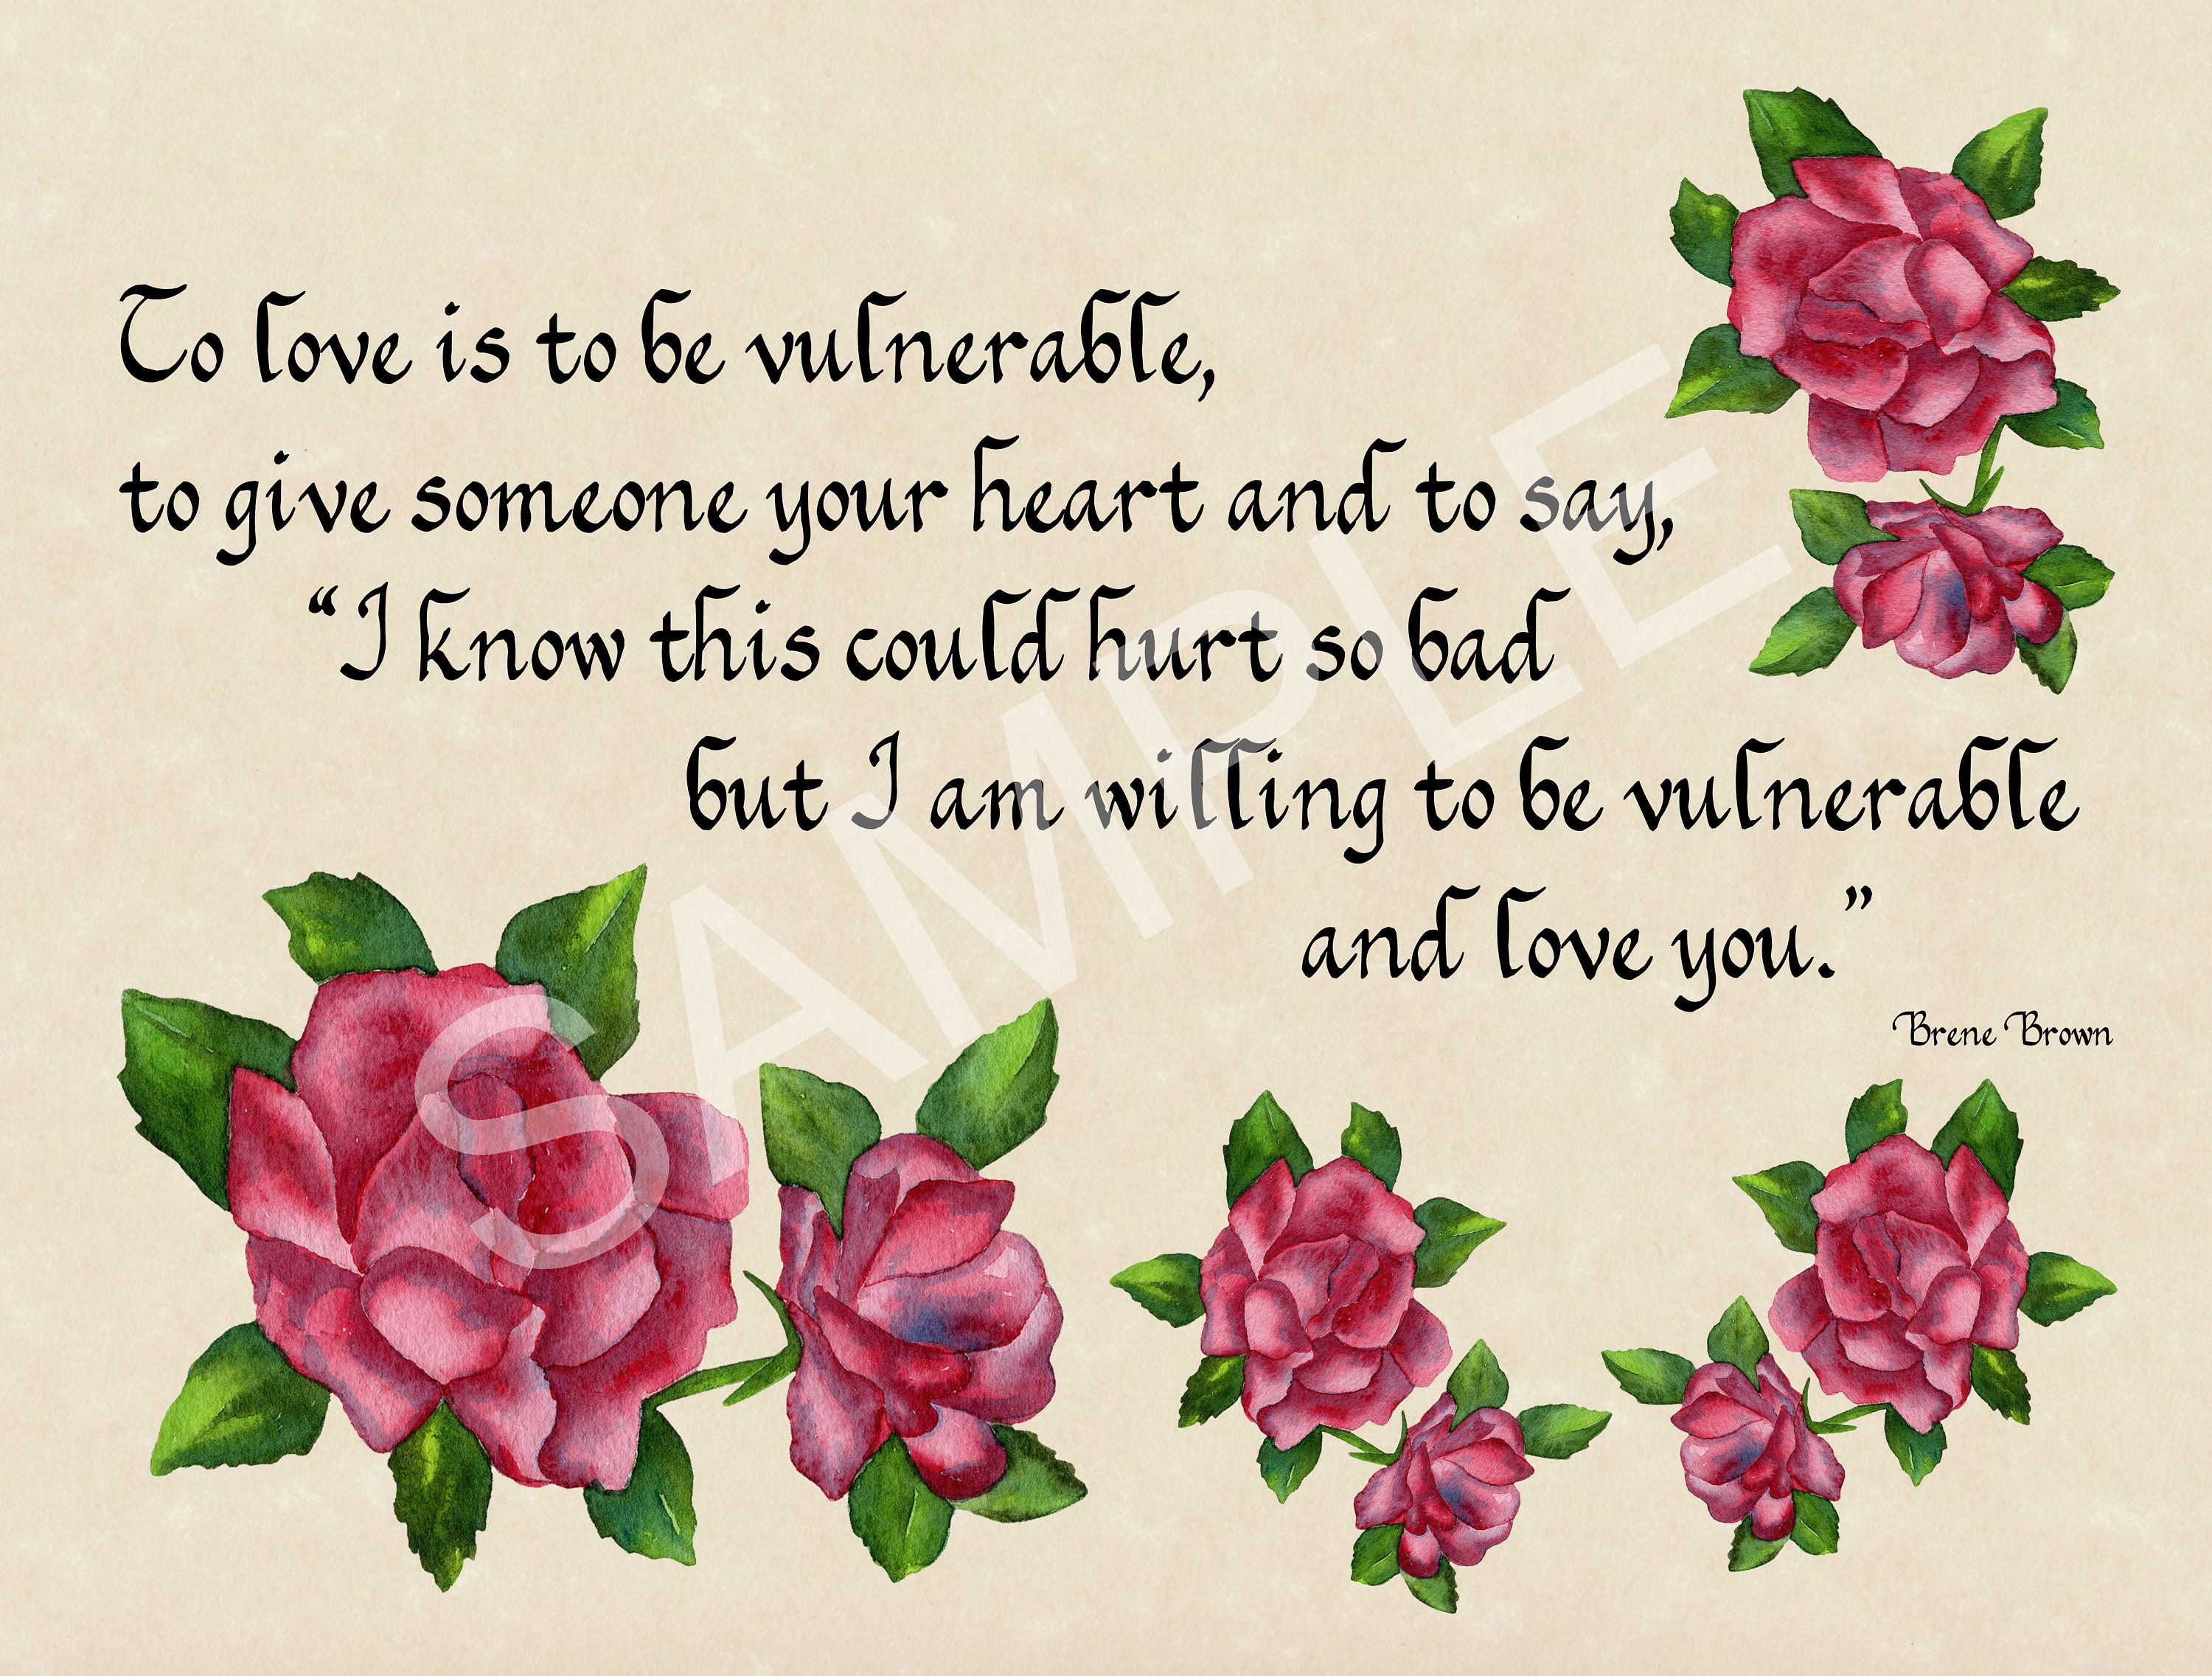 To love is to be vulnerable,
to give someone your heart and to say,
“I know this could hurt so bad
but I am willing to be vulnerable
and love you.”
Brene Brown
SAMPLE